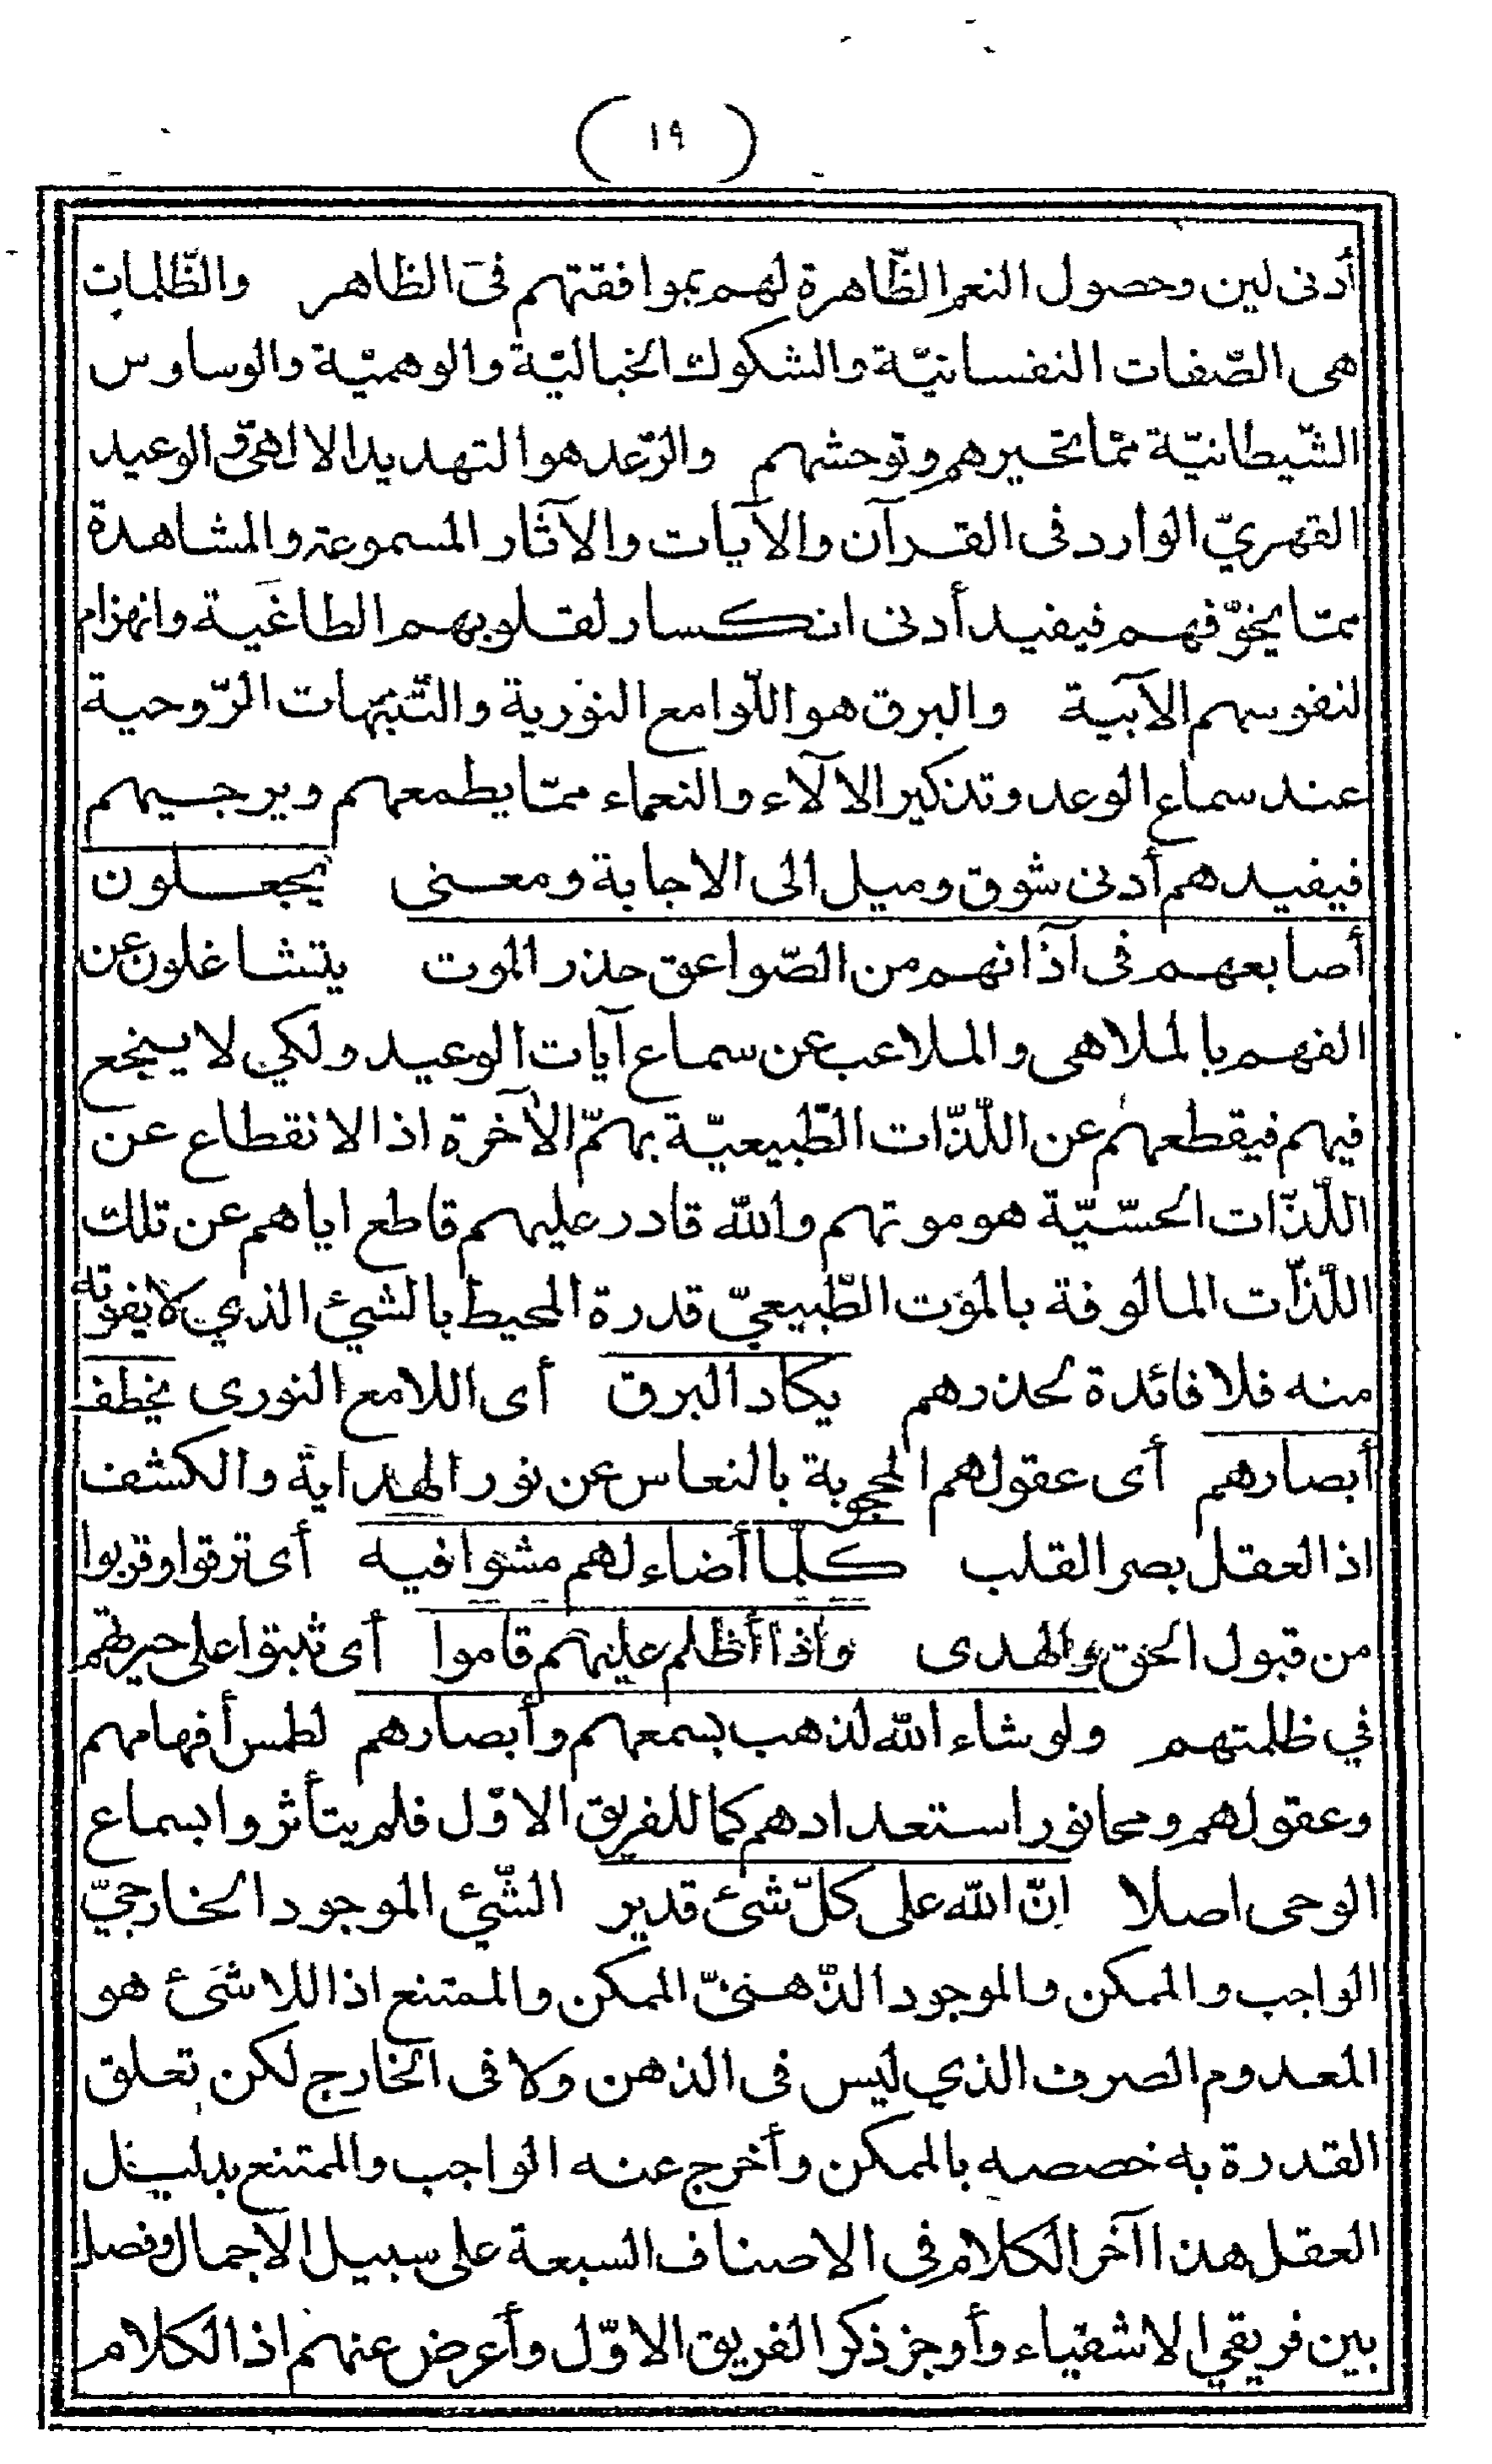 (١٩)
أدنى لين وحصول النعم الظّاهرة لهم بموافقتهم فى الظاهر والظّلمات
هى الصّفات النفسانيّة والشكوك الخياليّة والوهميّة والوساوس
الشّيطانيّة ممّا تحيرهم وتوحشهم والرّعد هو التهديد الالهىّ والوعيد
القهريّ الوارد فى القرآن والآيات والآثار المسموعة والمشاهدة
ممّا يخوّفهم فيفيد أدنى انكسار لقلوبهم الطاغية وانهزام
لنفوسهم الآبية والبرق هو اللّوامع النورية والتّنبيهات الرّوحية
عند سماع الوعد وتذكير الآلاء والنعماء ممّا يطمعهم ويرجيهم
فيفيدهم أدنى شوق وميل الى الاجابة ومعنى يجعلون
أصابعهم فى آذانهم من الصّواعق حذر الموت يتشاغلون عن
الفهم بالملاهى والملاعب عن سماع آيات الوعيد ولكي لا ينجع
فيهم فيقطعهم عن اللّذّات الطّبيعيّة بهمّ الآخرة اذ الانقطاع عن
اللّذّات الحسّيّة هو موتهم والله قادر عليهم قاطع اياهم عن تلك
اللّذّات المالوفة بالموت الطّبيعيّ قدرة المحيط بالشيئ الذي لا يفوته
منه فلا فائدة لحذرهم يكاد البرق أى اللامع النورى يخطف
أبصارهم أى عقولهم المحجوبة بالنعاس عن نور الهداية والكشف
اذ العقل بصر القلب كلّما أضاء لهم مشوا فيه أى ترقوا وقربوا
من قبول الحق والهدى واذا أظلم عليهم قاموا أى ثبتوا على حيرتهم
في ظلمتهم ولو شاء الله لذهب بسمعهم وأبصارهم لطمس أفهامهم
وعقولهم ومحا نور استعدادهم كما للفريق الاوّل فلم يتأثروا بسماع
الوحى اصلا انّ الله على كلّ شئ قدير الشّيئ الموجود الخارجيّ
الواجب والممكن والموجود الذّهنىّ الممكن والممتنع اذ اللاشئ هو
المعدوم الصرف الذي ليس فى الذهن ولا فى الخارج لكن تعلق
القدرة به خصصه بالممكن وأخرج عنه الواجب والممتنع بدليل
العقل هذا آخر الكلام فى الاصناف السبعة على سبيل الاجمال وفصل
بين فريقي الاشقياء وأوجز ذكر الفريق الاوّل وأعرض عنهم اذ الكلام